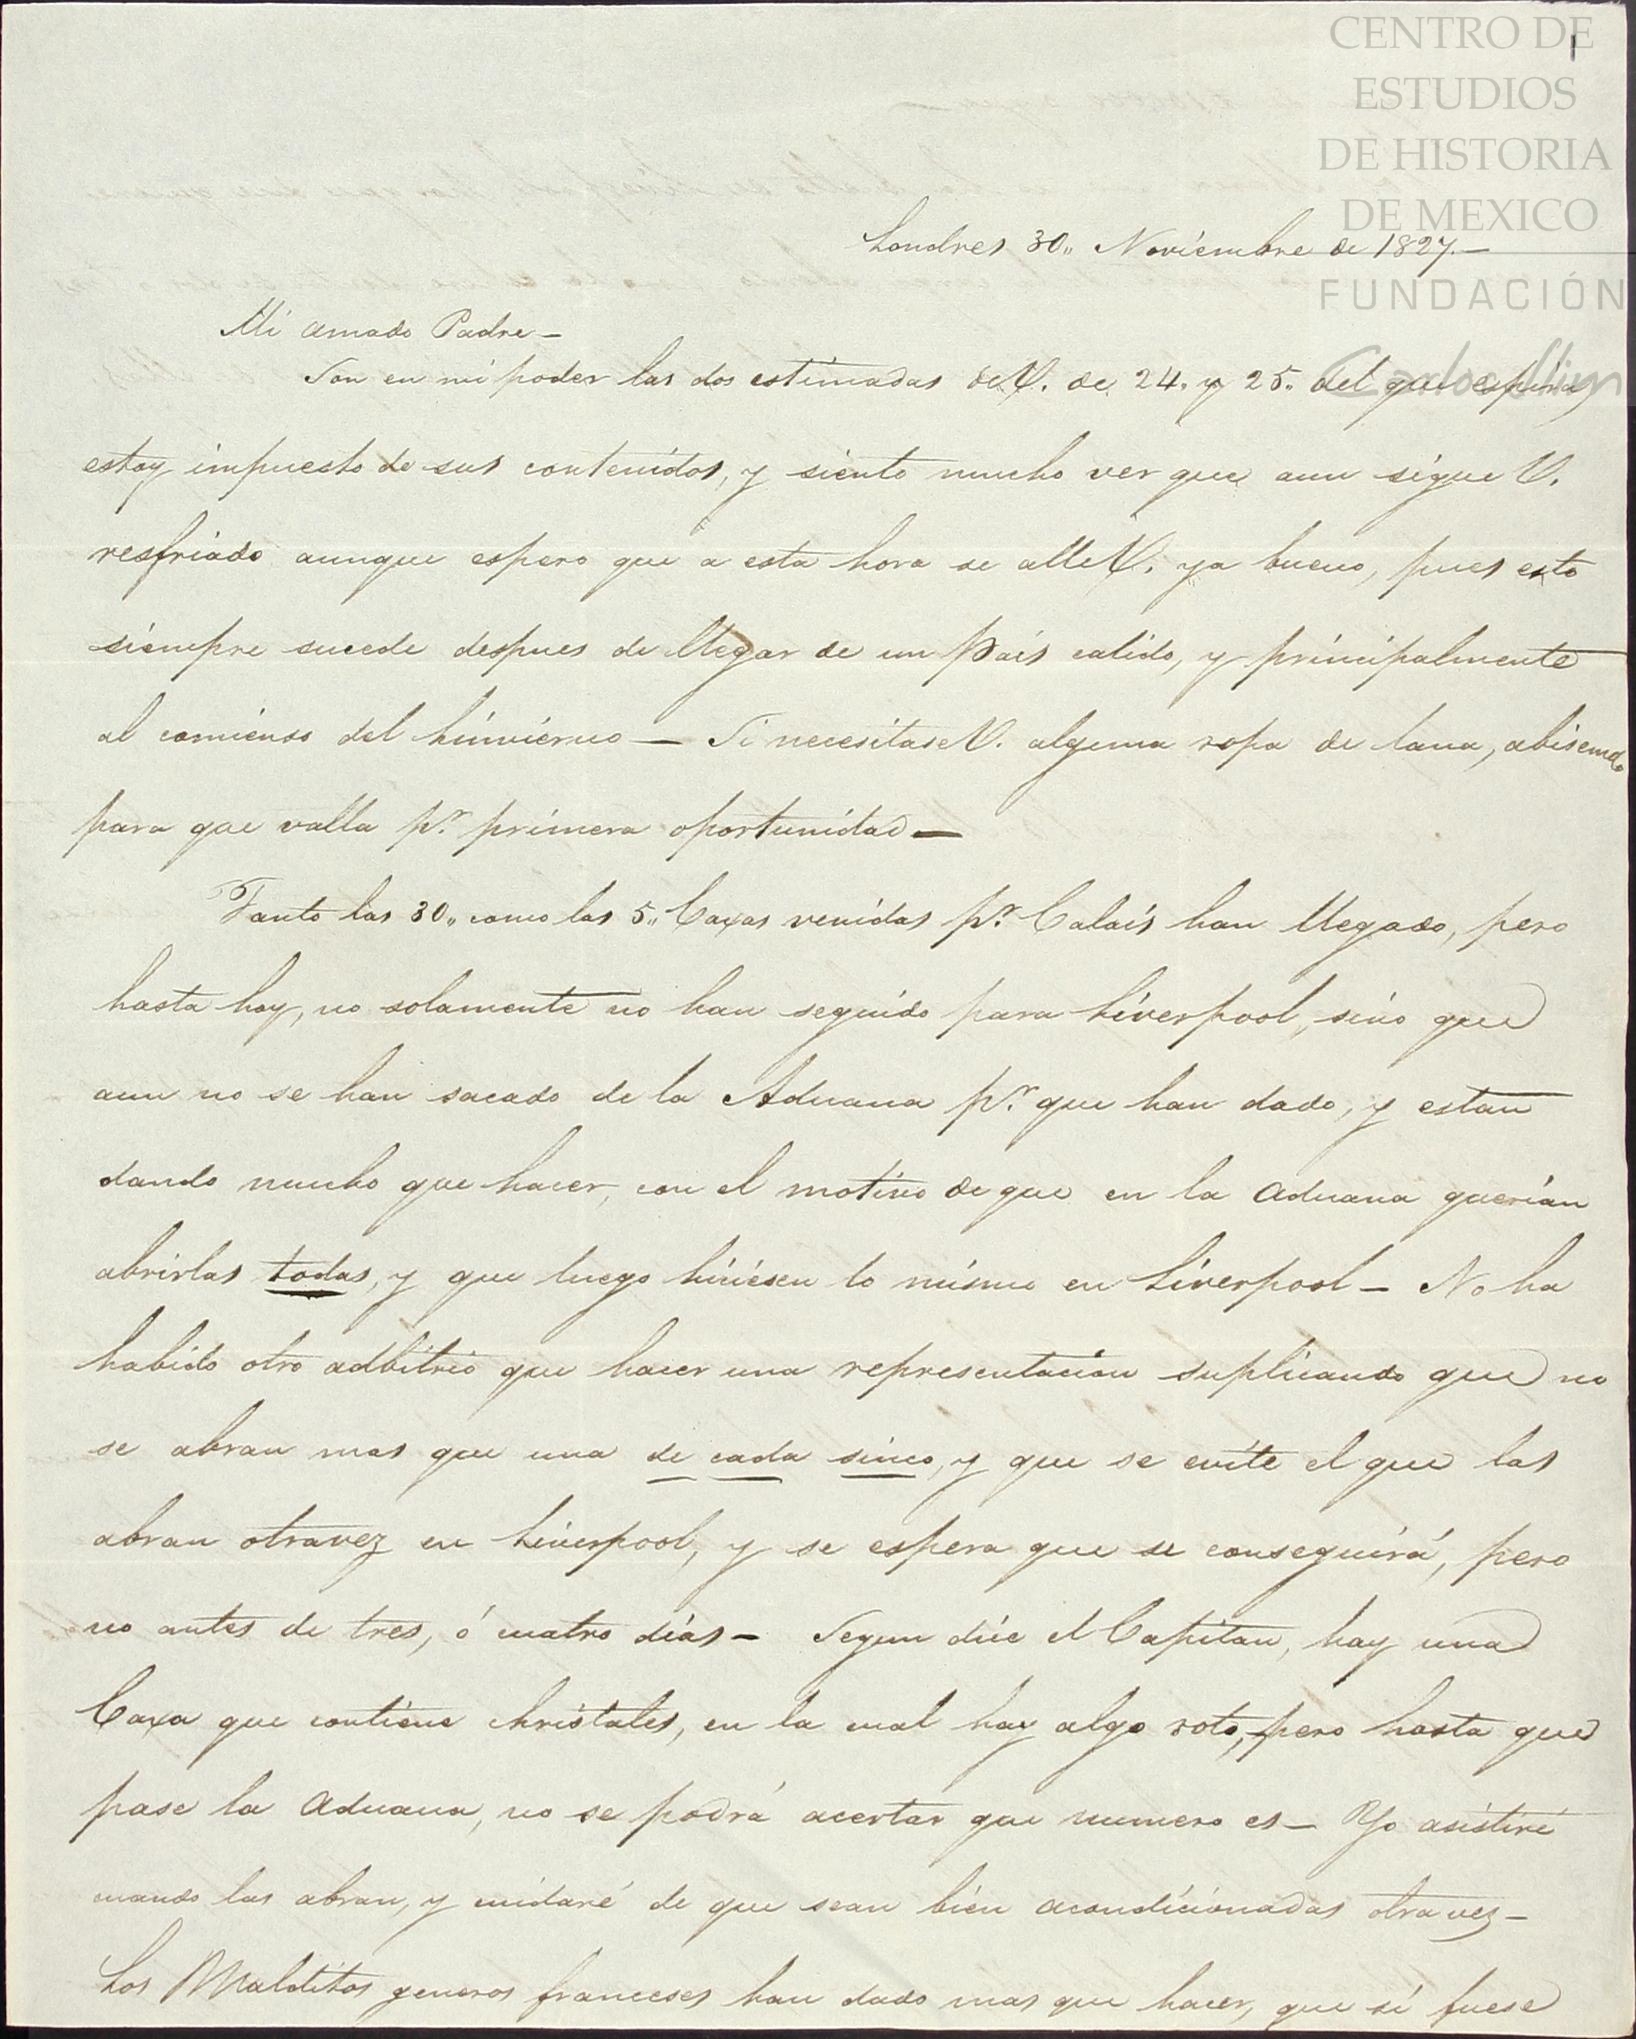 CENTRO DE
ESTUDIOS
DE HISTORIA
DE MEXICO
FUNDACIÓN
Carlos Slim
1
Londres 30,, Noviembre de 1827.—
Mi amado Padre—
Son en mi poder las dos estimadas de V. de 24. y 25. del que espira,
estoy impuesto de sus contenidos, y siento mucho ver que aun sigue V.
resfriado aunque espero que a esta hora se alle V. ya bueno, pues esto
siempre sucede despues de llegar de un Pais calido, y principalmente
al comienso del hinvierno — Si necesitase V. alguna ropa de lana, abisemelo
para que valla pr. primera oportunidad —
Tanto las 30,, como las 5,, Caxas venidas pr. Calais han llegado, pero
hasta hoy, no solamente no han seguido para Liverpool, sino que
aun no se han sacado de la Aduana pr. que han dado, y estan
dando mucho que hacer, con el motivo de que en la Aduana querian
abrirlas todas, y que luego hiciésen lo mismo en Liverpool — No ha
habido otro adbitrio que hacer una representacion suplicando que no
se abran mas que una de cada sinco, y que se evite el que las
abran otravez en Liverpool, y se espera que se conseguirá, pero
no antes de tres, ó cuatro dias — Segun dice el Capitan, hay una
Caxa que contiene christales, en la cual hay algo roto, pero hasta que
pase la Aduana, no se podrá acertar que numero es — Yo asistiré
cuando las abran, y cuidaré de que sean bien acondicionadas otra vez —
Los Malditos generos franceses han dado mas que hacer, que si fuese